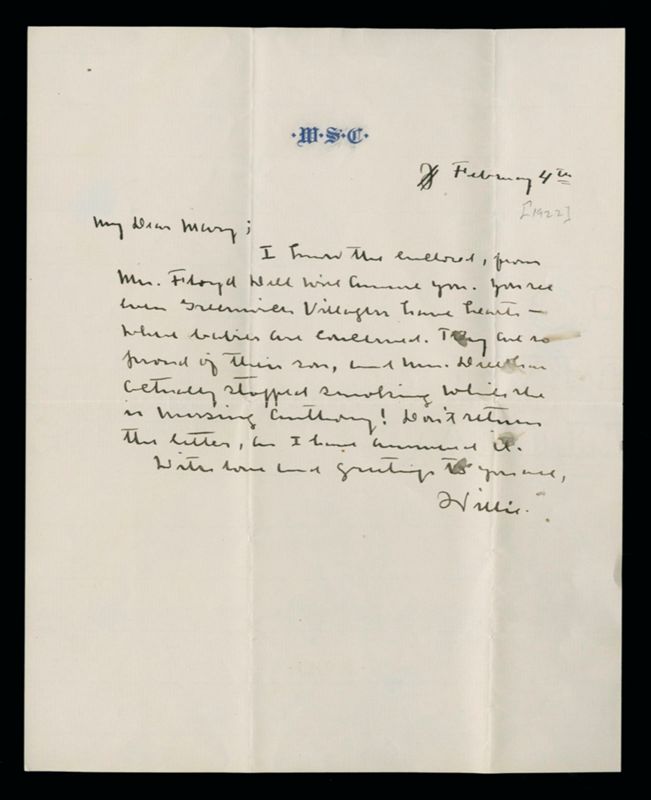 ·W·S·C·
February 4th
[1922]
My Dear Mary;
I know the enclosed, from
Mrs. Floyd Dell will amuse you. You see
even Greenwich Villagers have hearts —
where babies are concerned. They are so
proud of their son, and Mrs. Dell has
actually stopped smoking while she
is nursing Anthony! Don't return
the letter, as I have answered it.
With love and greetings to you all,
Willie.